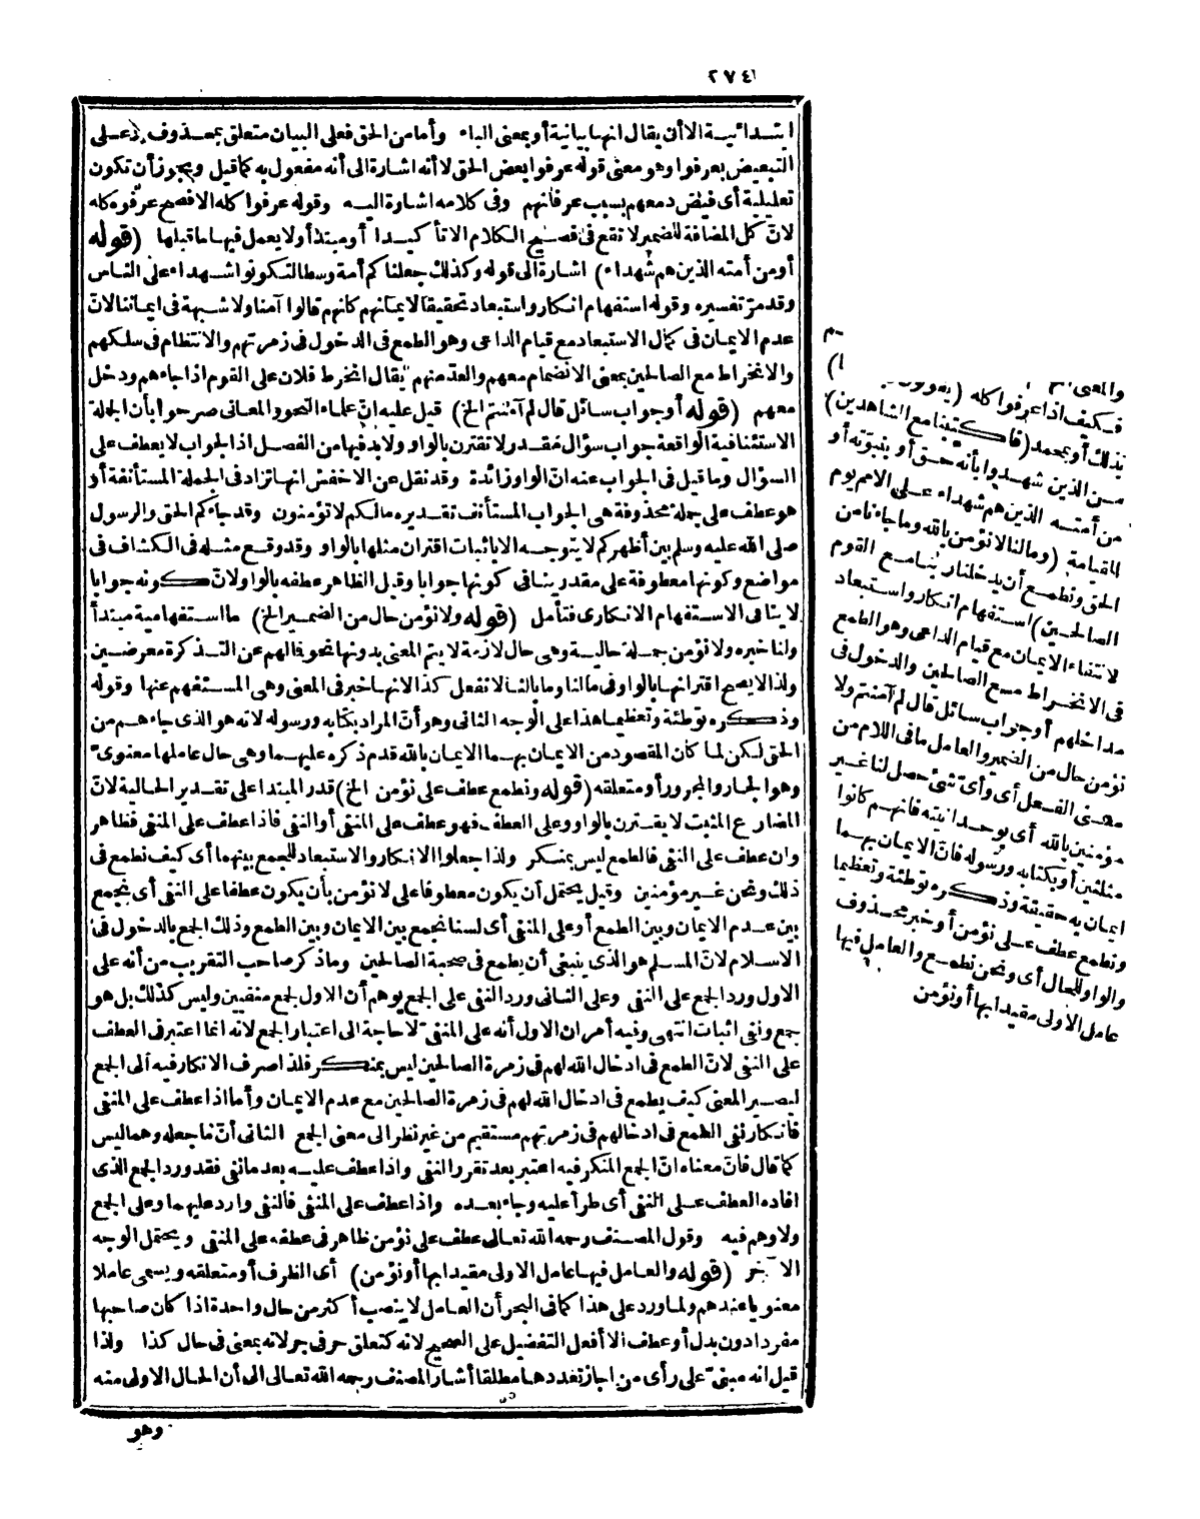 ٢٧٤
ابتدائية الا أن يقال انها بيانية أو بمعنى الباء وأما من الحق فعلى البيان متعلق بمحذوف وعلى
التبعيض بعرفوا وهو معنى قوله عرفوا بعض الحق لا أنه اشارة الى أنه مفعول به كما قيل ويجوز أن تكون
تعليلية أى فيض دمعهم بسبب عرفانهم وفى كلامه اشارة اليه وقوله عرفوا كله الافصح عرفوه كله
لان كل المضافة للضمير لا تقع فى فصيح الكلام الا تأكيدا أو مبتدأ ولا يعمل فيها ما قبلها (قوله
أو من أمته الذين هم شهداء) اشارة الى قوله وكذلك جعلناكم أمة وسطا لتكونوا شهداء على الناس
وقد مر تفسيره وقوله استفهام انكار واستبعاد تحقيقا لايمانهم كانهم قالوا آمنا ولا شبهة فى ايماننا لان
عدم الايمان فى كمال الاستبعاد مع قيام الداعى وهو الطمع فى الدخول فى زمرتهم والانتظام فى سلكهم
والانخراط مع الصالحين بمعنى الانضمام معهم والعد منهم يقال انخرط فلان على القوم اذا جاءهم ودخل
معهم (قوله أو جواب سائل قال لم آمنتم الخ) قيل عليه ان علماء النحو والمعانى صرحوا بأن الجملة
الاستئنافية الواقعة جواب سؤال مقدر لا تقترن بالواو ولا بد فيها من الفصل اذ الجواب لا يعطف على
السؤال وما قيل فى الجواب عنه ان الواو زائدة وقد نقل عن الاخفش انها تزاد فى الجملة المستأنفة أو
هو عطف على جملة محذوفة هى الجواب المستأنف تقديره مالكم لا تؤمنون وقد جاءكم الحق والرسول
صلى الله عليه وسلم بين أظهركم لا يتوجه الا باثبات اقتران مثلها بالواو وقد وقع مثله فى الكشاف فى
مواضع وكونها معطوفة على مقدر ينافى كونها جوابا وقيل الظاهر عطفه بالواو لان كونه جوابا
لا ينافى الاستفهام الانكارى فتأمل (قوله ولا نؤمن حال من الضمير الخ) ما استفهامية مبتدأ
ولنا خبره ولا نؤمن جملة حالية وهى حال لازمة لا يتم المعنى بدونها نحو فما لهم عن التذكرة معرضين
ولذا لا يصح اقترانها بالواو فى مالنا وما بالنا لا نفعل كذا لانها خبر فى المعنى وهى المستفهم عنها وقوله
وذكره توطئة وتعظيما هذا على الوجه الثانى وهو أن المراد بكتابه ورسوله لانه هو الذى جاءهم من
الحق لكن لما كان المقصود من الايمان بهما الايمان بالله قدم ذكره عليهما وهى حال عاملها معنوى
وهو الجار والمجرور أو متعلقه (قوله ونطمع عطف على نؤمن الخ) قدر المبتدا على تقدير الحالية لان
المضارع المثبت لا يقترن بالواو وعلى العطف فهو عطف على المنفى أو النفى فاذا عطف على المنفى فظاهر
وان عطف على النفى فالطمع ليس بمنكر ولذا جعلوا الانكار والاستبعاد للجمع بينهما أى كيف نطمع فى
ذلك ونحن غير مؤمنين وقيل يحتمل أن يكون معطوفا على لا نؤمن بأن يكون عطفا على النفى أى نجمع
بين عدم الايمان وبين الطمع أو على المنفى أى لسنا نجمع بين الايمان وبين الطمع وذلك الجمع بالدخول فى
الاسلام لان المسلم هو الذى ينبغى أن يطمع فى صحبة الصالحين وما ذكر صاحب التقريب من أنه على
الاول ورد الجمع على النفى وعلى الثانى ورد النفى على الجمع يوهم أن الاول لجمع منفيين وليس كذلك بل هو
جمع ونفى اثبات انتهى وفيه أمران الاول أنه على المنفى لا حاجة الى اعتبار الجمع لانه انما اعتبر فى العطف
على النفى لان الطمع فى ادخال الله لهم فى زمرة الصالحين ليس بمنكر فلذا صرف الانكار فيه الى الجمع
ليصير المعنى كيف يطمع فى ادخال الله لهم فى زمرة الصالحين مع عدم الايمان وأما اذا عطف على المنفى
فانكار نفى الطمع فى ادخالهم فى زمرتهم مستقيم من غير نظر الى معنى الجمع الثانى أن ما جعله وهما ليس
كما قال فان معناه ان الجمع المنكر فيه اعتبر بعد تقرر النفى واذا عطف عليه بعد ما نفى فقد ورد الجمع الذى
افاده العطف على النفى أى طرأ عليه وجاء بعده واذا عطف على المنفى فالنفى وارد عليهما وعلى الجمع
ولا وهم فيه وقول المصنف رحمه الله تعالى عطف على نؤمن ظاهر فى عطفه على المنفى ويحتمل الوجه
الآخر (قوله والعامل فيها عامل الاولى مقيدا بها أو نؤمن) أى الظرف أو متعلقه ويسمى عاملا
معنويا عندهم ولما ورد على هذا كما فى البحر أن العامل لا ينصب أكثر من حال واحدة اذا كان صاحبها
مفردا دون بدل أو عطف الا أفعل التفضيل على الصحيح لانه كتعلق حرفى جر لانه بمعنى فى حال كذا ولذا
قيل انه مبنى على رأى من اجاز تعددها مطلقا أشار المصنف رحمه الله تعالى الى أن الحال الاولى منه
وهو
والمعنى
فكيف اذا عرفوا كله (يقولون
بذلك أو بمحمد (فاكتبنا مع الشاهدين)
من الذين شهدوا بأنه حق أو بنبوته أو
من أمته الذين هم شهداء على الامم يوم
القيامة (وما لنا لا نؤمن بالله وما جاءنا من
الحق ونطمع أن يدخلنا ربنا مع القوم
الصالحين) استفهام انكار واستبعاد
لانتفاء الايمان مع قيام الداعى وهو الطمع
فى الانخراط مع الصالحين والدخول فى
مداخلهم أو جواب سائل قال لم آمنتم ولا
نؤمن حال من الضمير والعامل ما فى اللام من
معنى الفعل أى وأى شئ حصل لنا غير
مؤمنين بالله أى بوحدانيته فانهم كانوا
مثلثين أو بكتابه ورسوله فان الايمان بهما
ايمان به حقيقة وذكره توطئة وتعظيما
ونطمع عطف على نؤمن أو خبر محذوف
والواو للحال أى ونحن نطمع والعامل فيها
عامل الاولى مقيدا بها أو نؤمن